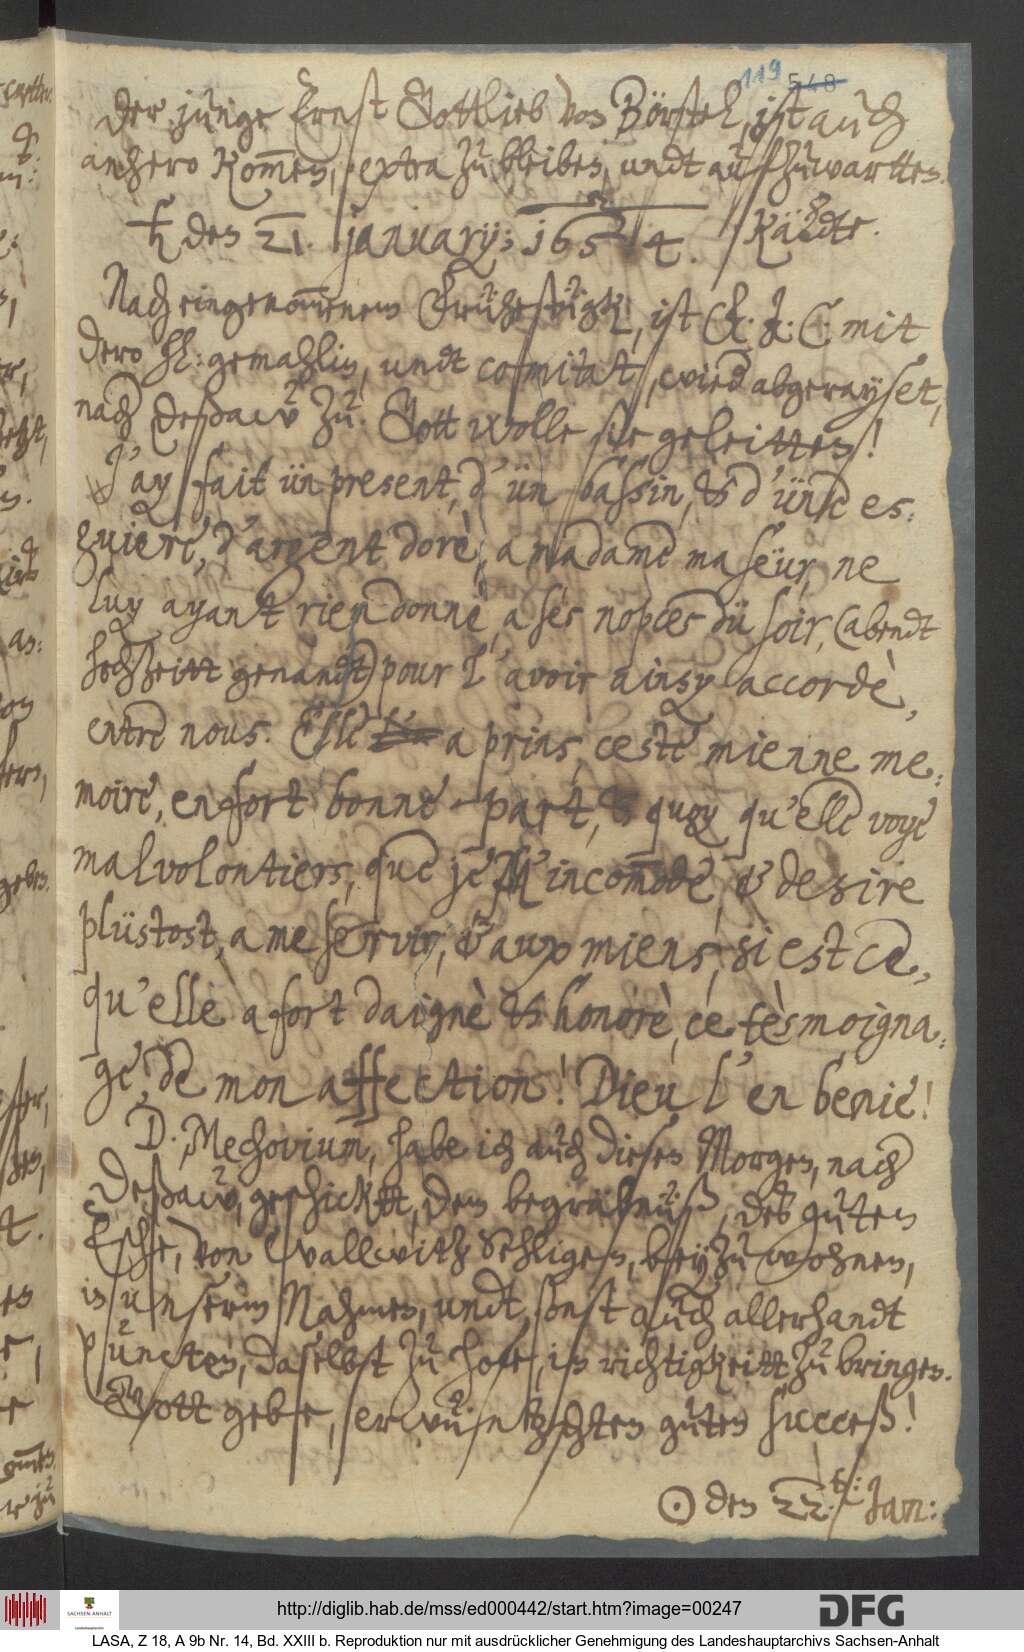 119 548
Der junge Ernst Gottlieb von Börstel, ist auch
anhero kom̄en, extra zu bleiben, undt aufzuwartten.
♄ den 21. January; 1654. Kä̈ldte.
Nach eingenom̄enem Frühestügk, ist E. L: mit
dero H: gemahlin, undt comitat, wied abgerayset,
nach Deßaw zu. Gott wolle sie geleitten!
J'ay fait ün present, d'ün bassin, & d'üne es:
guiere, d'argent dorè, a madame ma seür, ne
luy ayant rien donnè, a ses nopces dü soir, (abendt
hochzeitt genandt) pour l'avoir ainsy accordè,
entre nous. Elle a prins, ceste mienne me:
moire, en fort bonne part, & quoy qu'elle voye
mal volontiers, que je m'incom̄ode, & desire
plüstost, a me servir, & aux miens, si est ce,
qu'elle a fort daignè & honorè, ce tèsmoigna:
ge, de mon affection! Dieu l'en benie!
D. Mechovium, habe ich auch diesen Morgen, nach
Deßaw, geschicktt, dem begräbnüß, des guten
Esche, von Wallwitz Sehligen, beyzuwohnen,
in unserm Nahmen, undt, sonst auch allerhandt
puncten, daselbst zu hofe, in richtigkeitt zu bringen.
Gott gebe, erwüntzschten guten succeß!
☉ den 22. Jan:
http://diglib.hab.de/mss/ed000442/start.htm?image=00247
DFG
SACHSEN-ANHALT
LASA, Z 18, A 9b Nr. 14, Bd. XXIII b. Reproduktion nur mit ausdrücklicher Genehmigung des Landeshauptarchivs Sachsen-Anhalt